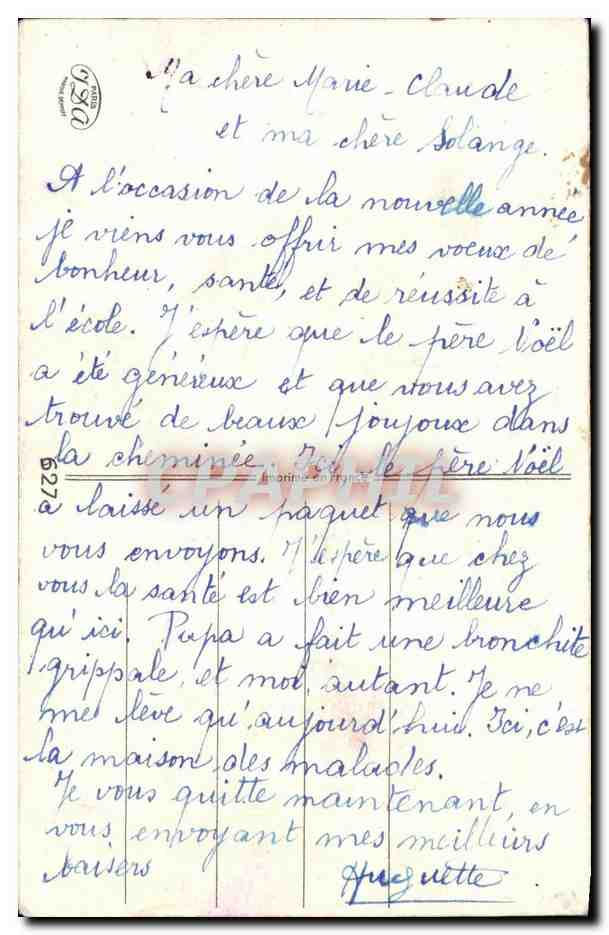 Ma chère Marie-Claude
et ma chère Solange.
A l'occasion de la nouvelle année
je viens vous offrir mes voeux de
bonheur, santé, et de réussite à
l'école. J'espère que le père Noël
a été généreux et que vous avez
trouvé de beaux joujoux dans
la cheminée. Ici, le père Noël
a laissé un paquet que nous
vous envoyons. J'espère que chez
vous la santé est bien meilleure
qu'ici. Papa a fait une bronchite
grippale, et moi, autant. Je ne
me lève qu'aujourd'hui. Ici, c'est
la maison des malades.
Je vous quitte maintenant, en
vous envoyant mes meilleurs
baisers
Huguette
PARIS
6270
Imprimé en France
CPAPHIL